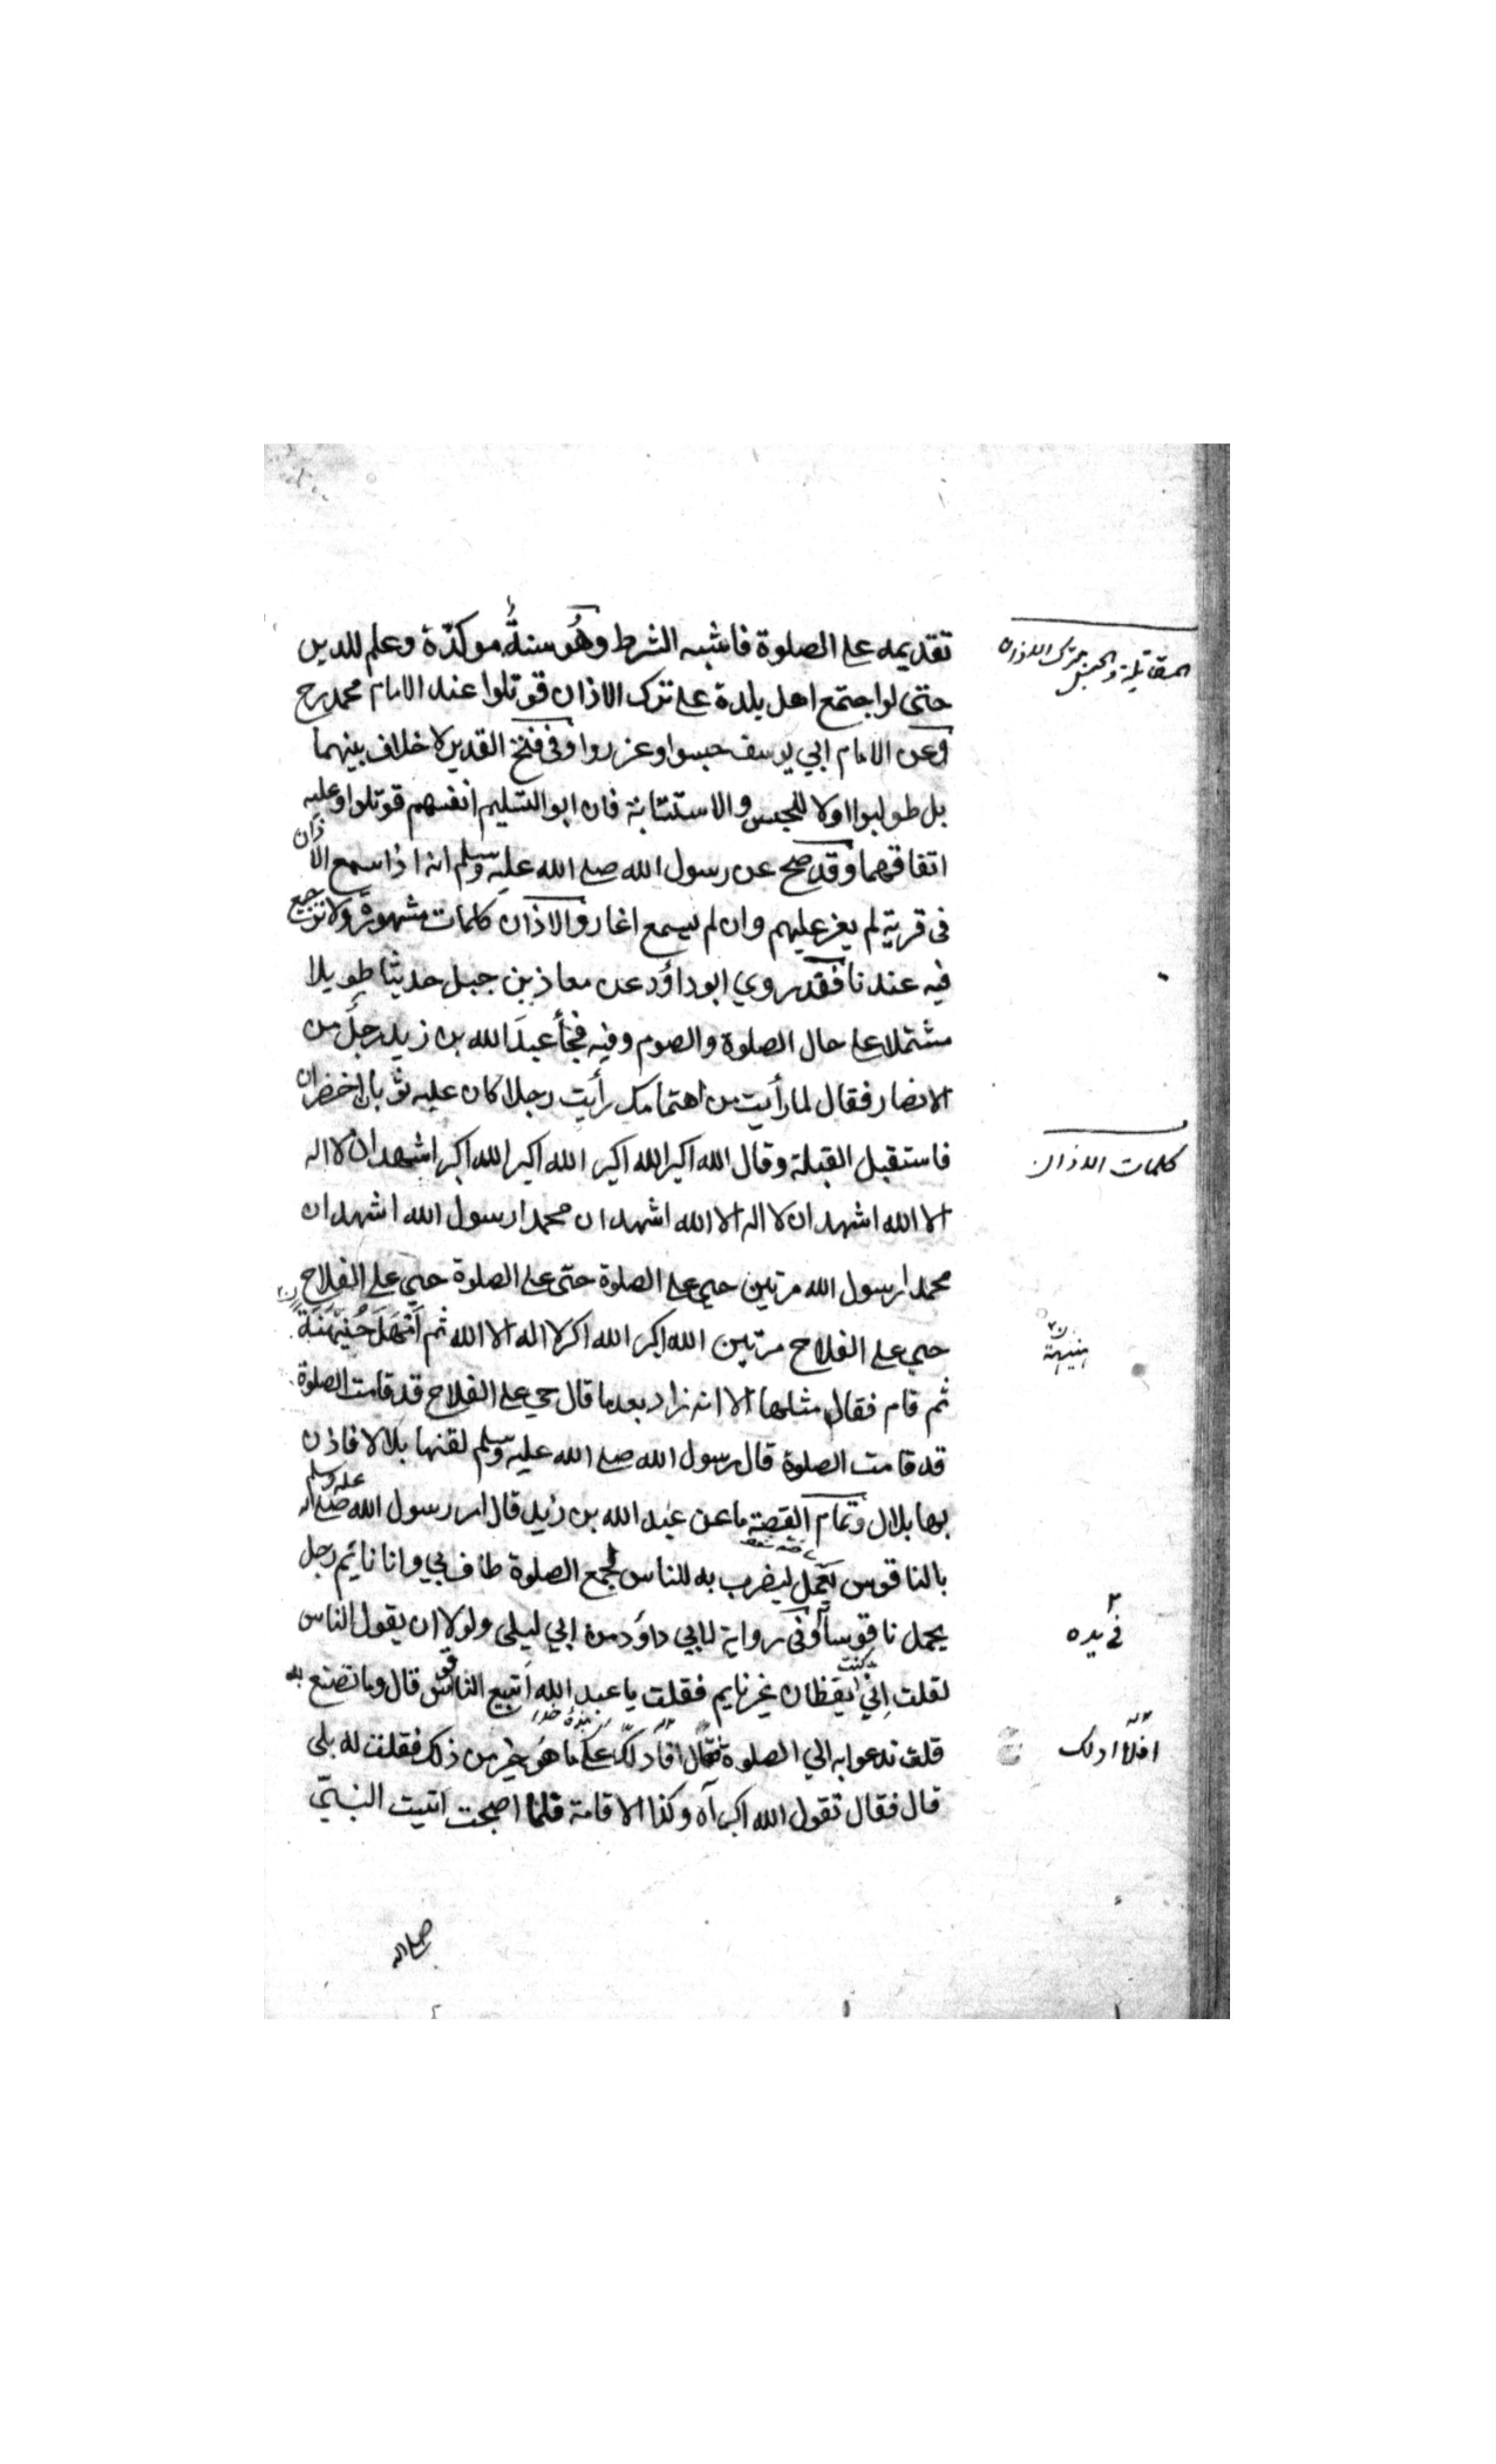 تقديمه على الصلوة فاشبه الشرط وهو سنةٌ موكدّة وعلم للدين
المقاتلة والحبس بترك الاذان
حتى لو اجتمع اهل بلدة على ترك الاذان قوتلوا عند الامام محمد رح
وعن الامام ابي يوسف حبسوا وعزروا وفي فتح القدير لا خلاف بينهما
بل طولبوا اولا للحبس والاستتابة فان ابوا لتسليم انفسهم قوتلوا وعليه
اتفاقهما وقد صح عن رسول الله صلى الله عليه وسلم انه اذا سمع الاذان
في قرية لم يغر عليهم وان لم يسمع اغار والاذان كلمات مشهورة ولا ترجيع
فيه عندنا فقد روي ابو داؤد عن معاذ بن جبل حديثا طويلا
مشتملا على حال الصلوة والصوم وفيه فجأ عبد الله بن زيد رجل من
الانصار فقال لما رأيت من اهتمامك رأيت رجلا كان عليه ثوبان اخضران
فاستقبل القبلة وقال الله اكبر الله اكبر الله اكبر الله اكبر اشهد ان لا اله
كلمات الاذان
الا الله اشهد ان لا اله الا الله اشهد ان محمدا رسول الله اشهد ان
محمدا رسول الله مرتين حي على الصلوة حتى على الصلوة حي على الفلاح
حي على الفلاح مرتين الله اكبر الله اكبر لا اله الا الله ثم امهل هُنَيْهَنَة
هنيهة
ثم قام فقال مثلها الا انه زاد بعد ما قال حي على الفلاح قد قامت الصلوة
قد قامت الصلوة قال رسول الله صلى الله عليه وسلم لقنها بلالا فاذن
بها بلال وتمام القصة ما عن عبد الله بن زيد قال امر رسول الله صلى الله عليه وسلم
بالناقوس يعمل ليضرب به للناس لجمع الصلوة طاف بي وانا نايم رجل
يحمل ناقوسا وفي رواية لابي داؤد من ابي ليلى ولولا ان يقول الناس
في يده
لقلت اني كنت يقظان غير نايم فقلت يا عبد الله اتبيع الناقوس قال وما تصنع به
قلت ندعوا به الي الصلوة فقال افا دلّك على ما هو خير من ذلك فقلت له بلى
افلا ادلك
قال فقال تقول الله اكبر آه وكذا الاقامة فلما اصبحت اتيت النبيّ
صلى الله